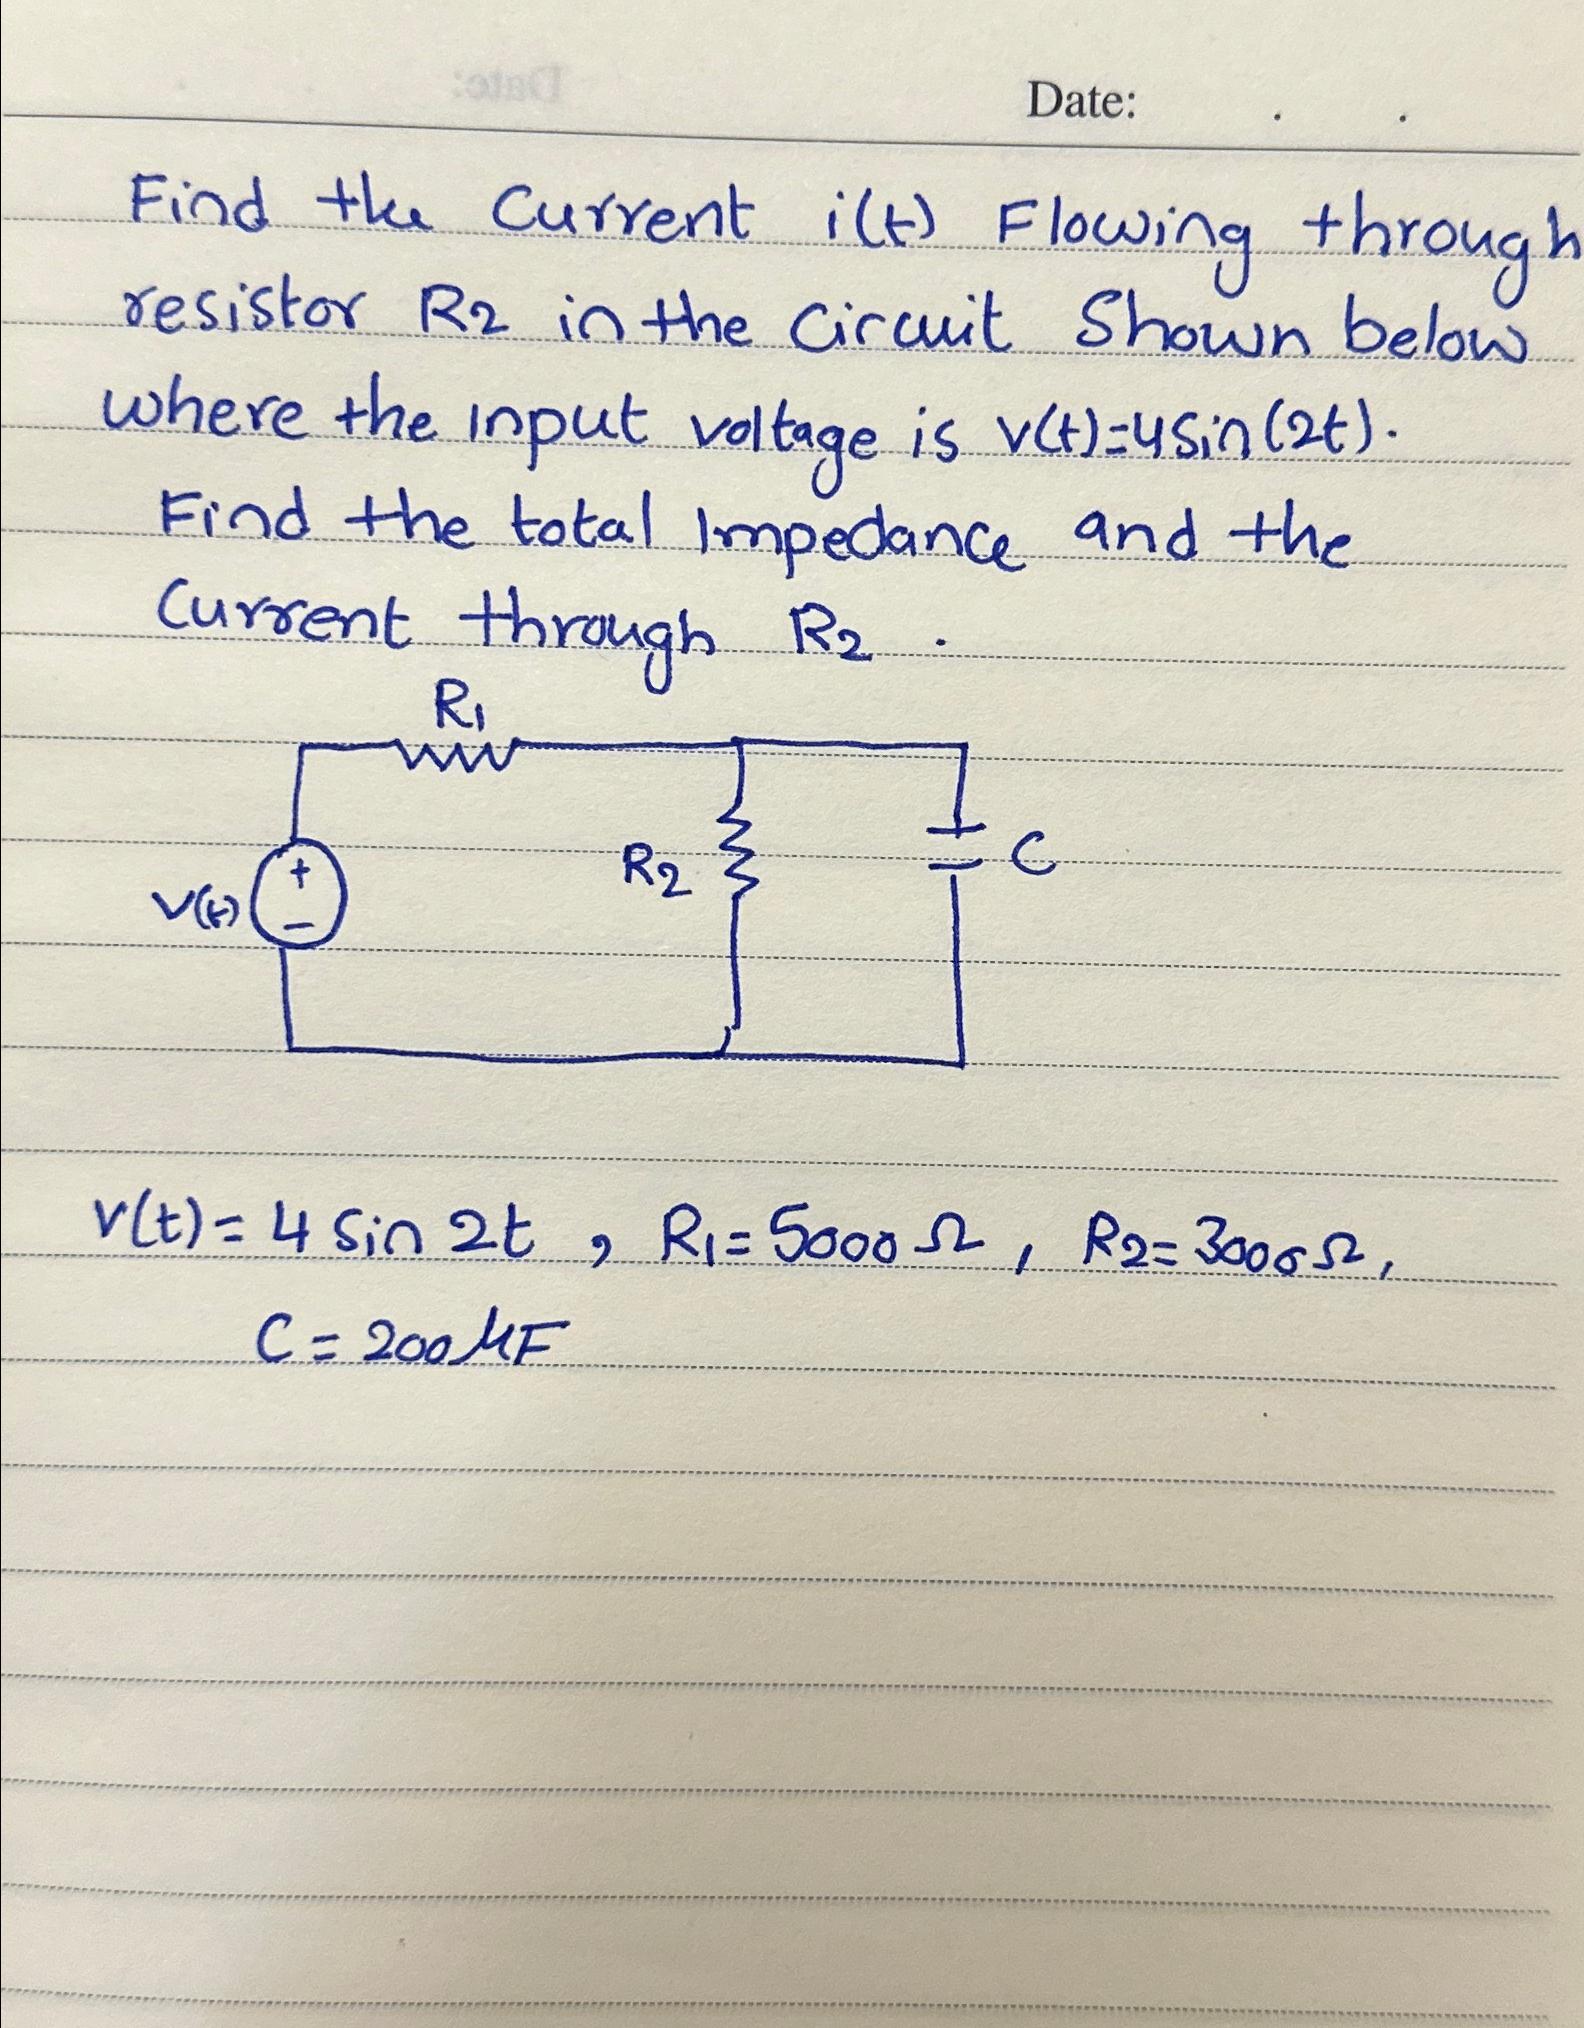 Date:
Find the Current i(t) Flowing through
resistor R2 in the Circuit Shown below
where the input voltage is v(t)=4Sin(2t).
Find the total Impedance and the
Current through R2.
R1
R2
C
V(t)
+
-
v(t)= 4 Sin 2t , R1= 5000 Ω, R2= 3000Ω,
C = 200 μF